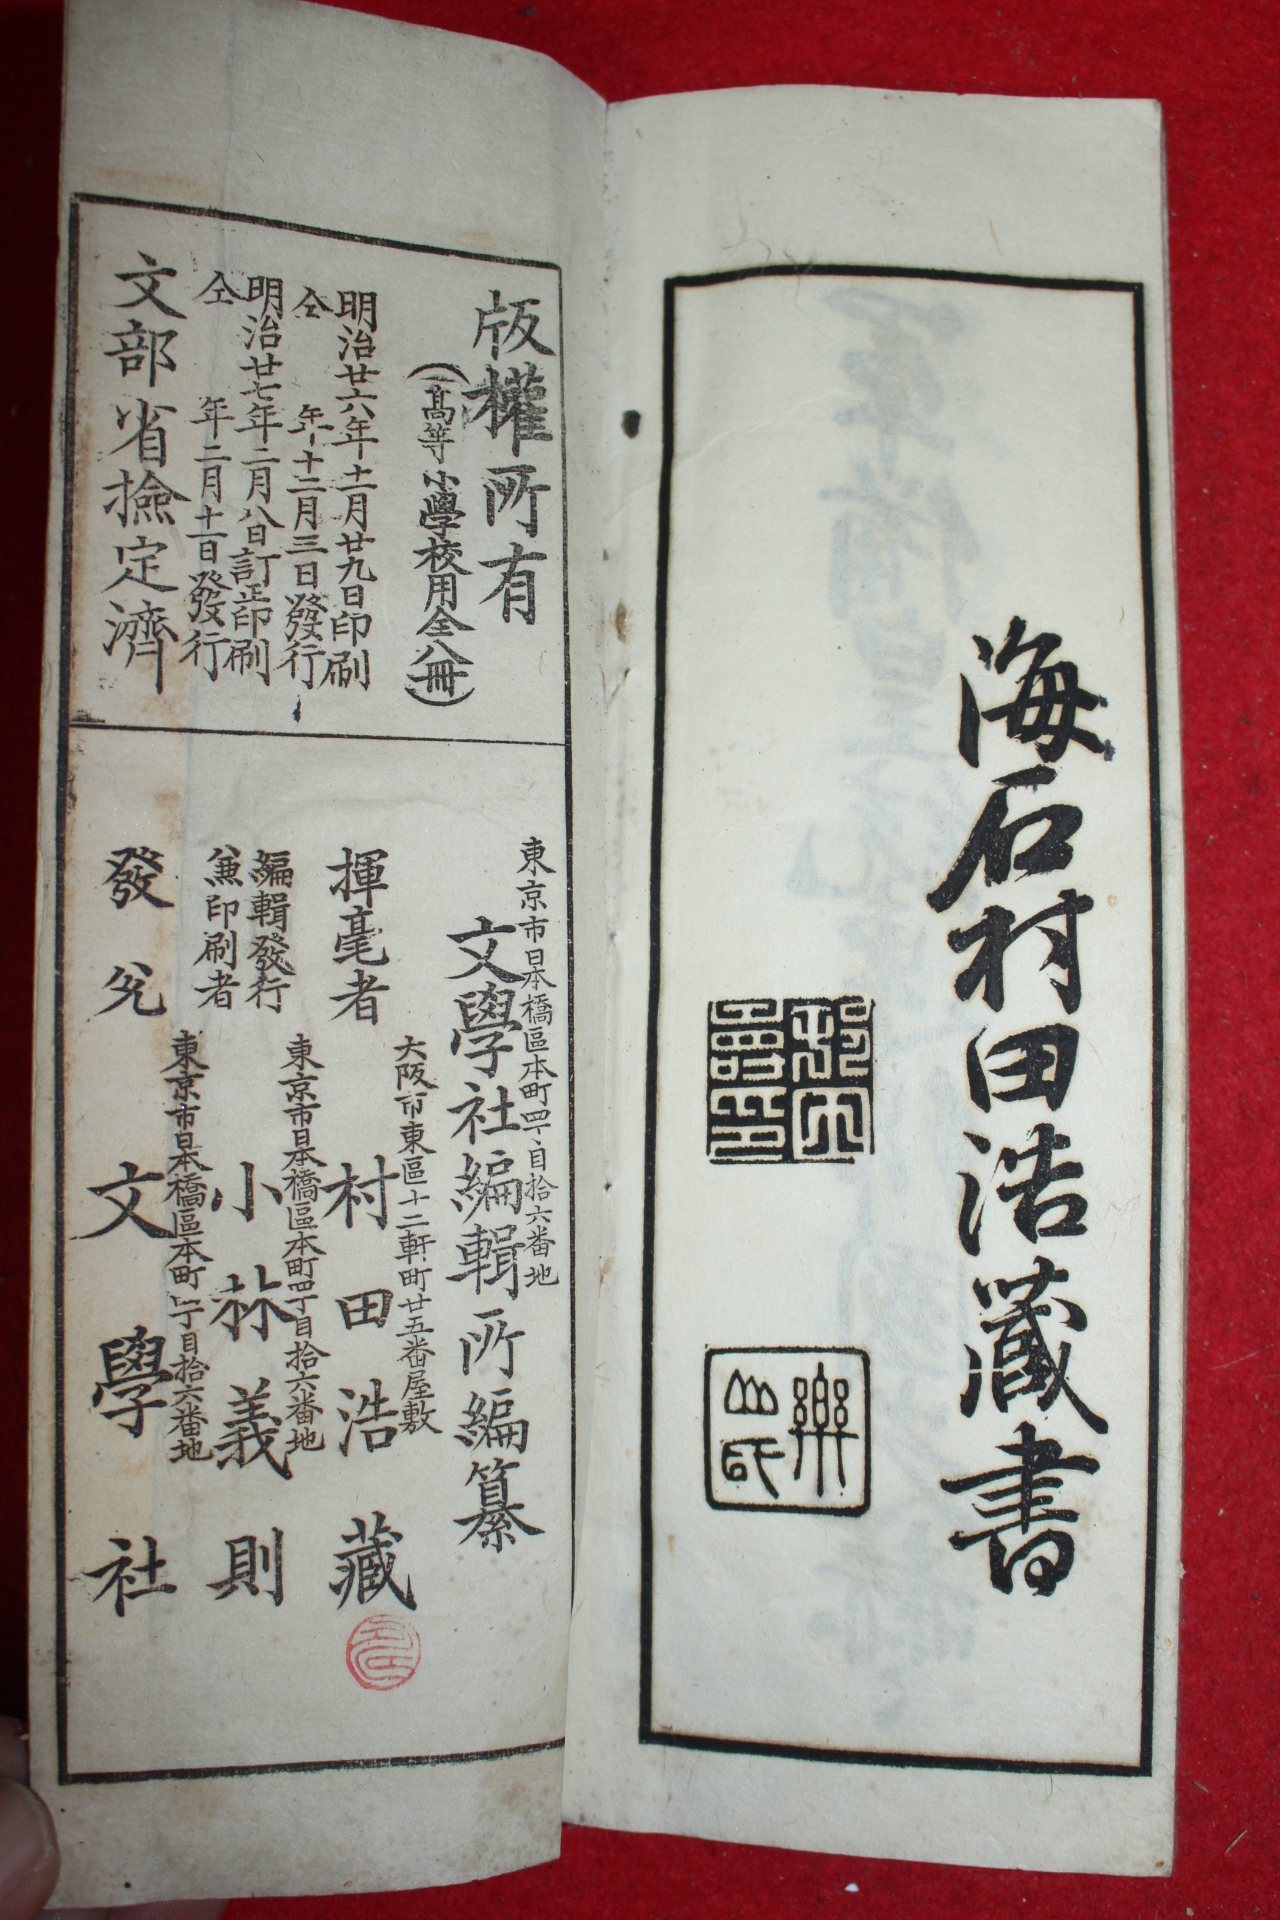 海石村田浩藏書
樂山氏
版權所有
（高等小學校用全八冊）
明治廿六年十一月廿九日印刷
仝年十二月三日發行
明治廿七年二月八日訂正印刷
仝年二月十一日發行
文部省撿定濟
東京市日本橋區本町四丁目拾六番地
文學社編輯所編纂
大阪市東區十二軒町廿五番屋敷
揮毫者 村田浩藏
東京市日本橋區本町四丁目拾六番地
編輯發行
兼印刷者 小林義則
東京市日本橋區本町四丁目拾六番地
發兌 文學社